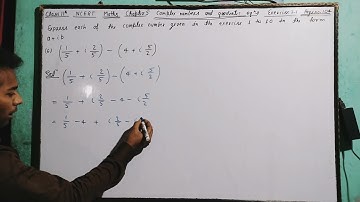 Class 11th NCERT Maths Chapter 5 complex numbers and quadratic eqns Exercise 5.1
Express each of the complex number given in the exercise 1 to 10 in the form
a+ib
(6) (1/5 + i 2/5) - (4 + i 5/2)
Soln (1/5 + i 2/5) - (4 + i 5/2)
= 1/5 + i 2/5 - 4 - i 5/2
= 1/5 - 4 + i 2/5 -